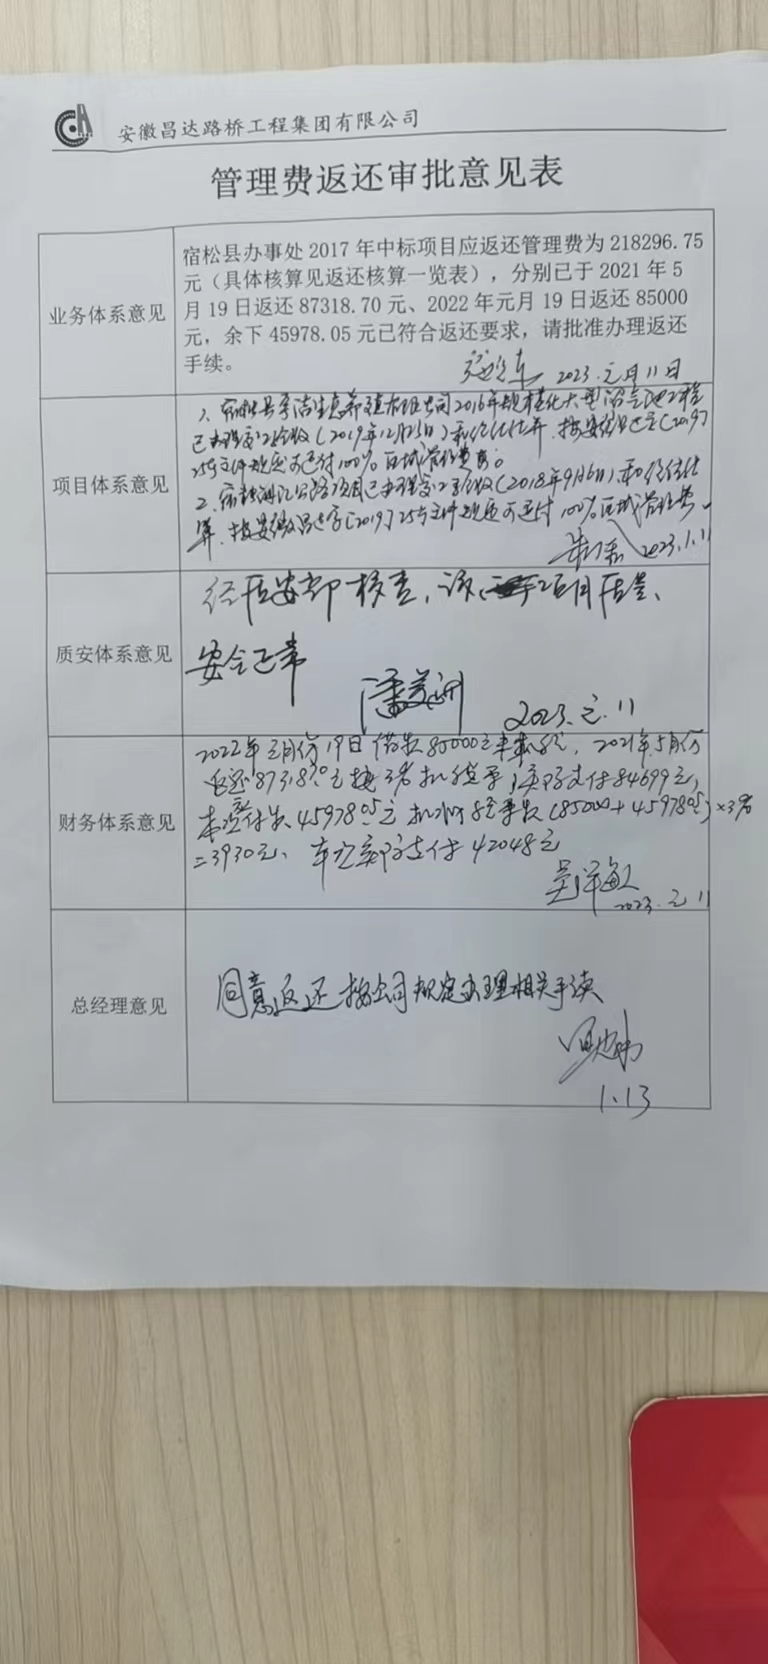 安徽昌达路桥工程集团有限公司
管理费返还审批意见表
业务体系意见
宿松县办事处 2017 年中标项目应返还管理费为 218296.75
元（具体核算见返还核算一览表），分别已于 2021 年 5
月 19 日返还 87318.70 元、2022 年元月 19 日返还 85000
元，余下 45978.05 元已符合返还要求，请批准办理返还
手续。
2023.元月11日
项目体系意见
1、宿松县 生态养殖 2016年规模化大型沼气工程
已办理交工验收（2019年12月25日）和 ，按安徽昌达字（2019）
25号文件规定可退付100%区域管理费。
2、宿松 公路项目已办理交工验收（2018年9月6日）和
算，按安徽昌达字[2019]25号文件规定可退付100%区域管理费。
2023.1.11
质安体系意见
经质安部核查，该 项目质量、
安全正常
潘 2023.元.11
财务体系意见
2022年元月份19日借款85000元未 ，2021年5月份
返还87318.70元按3%扣税费，实际支付84699元，
本次应付款45978.05元扣除 款（85000+45978.05）×3%
=3930元、本次实际支付42048元
2023.元.11
总经理意见
同意返还按公司规定办理相关手续
1.13